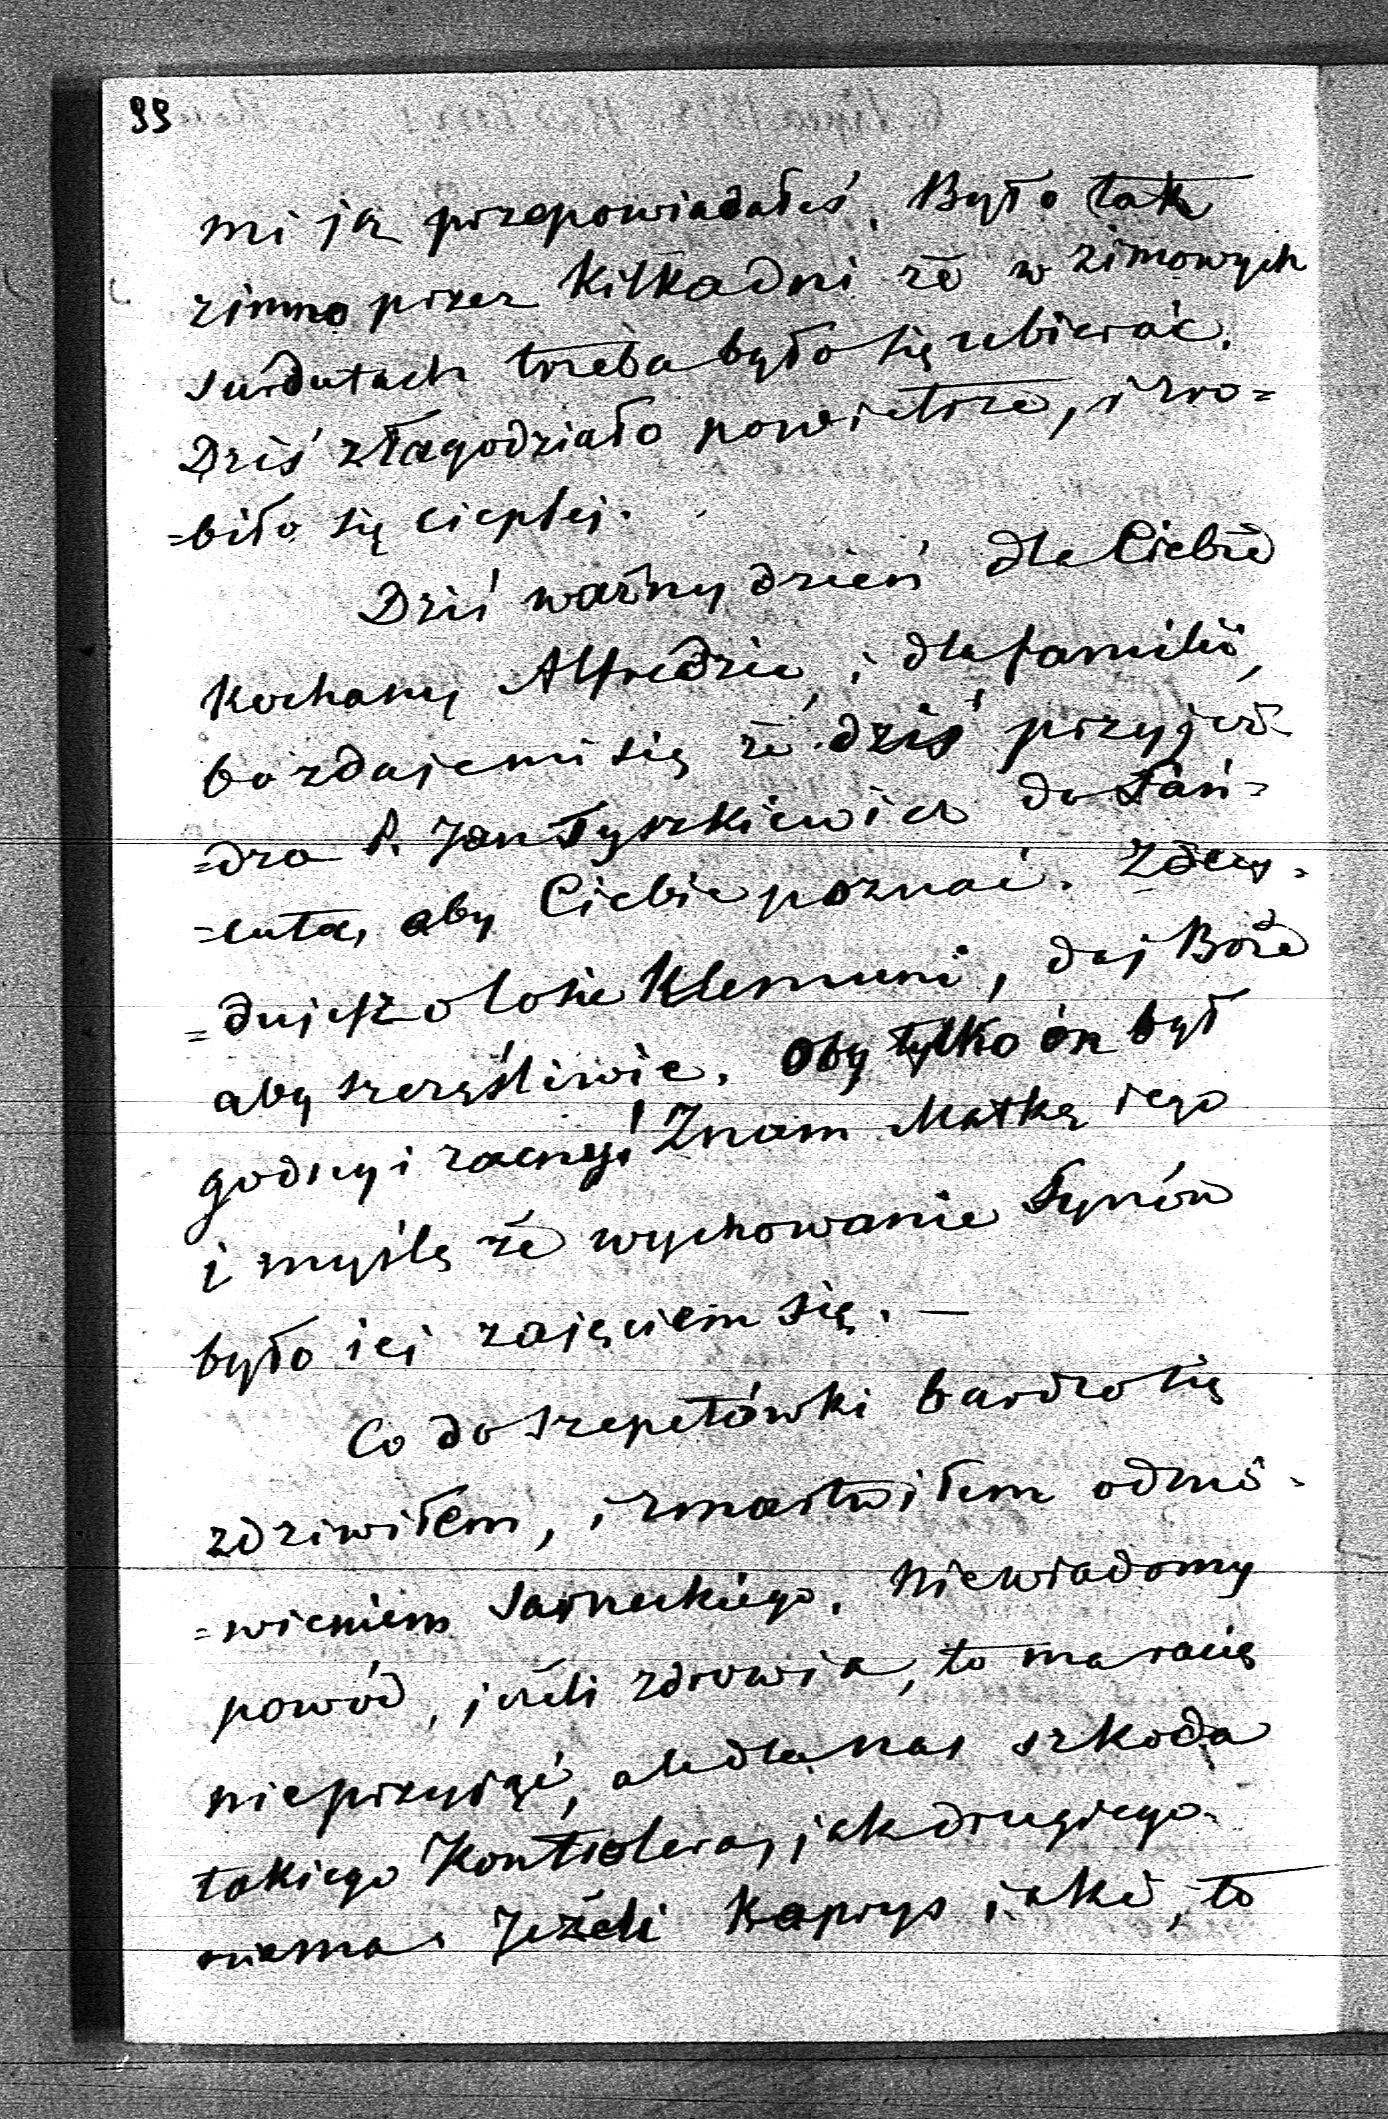 99
mi ją przepowiadałeś. Było tak
zimno przez kilka dni że w zimowych
surdutach trzeba było się ubierać.
Dziś złagodziało powietrze, i zro=
=biło się cieplej.
Dziś ważny dzień dla Ciebie
kochany Alfredzie, i dla familii,
bo zdaje mi się że dziś przyjeż=
=dza P. Jan Tyszkiewicz do Łań=
=cuta, aby Ciebie poznać. Zdecy=
=dujesz o losie Klemuni, daj Boże
aby szczęśliwie. Oby tylko ón był
godny i zacny! Znam Matkę iego
i myślę że wychowanie Synów
było iej zajęciem się. —
Co do Szepetówki bardzo się
zdziwiłem, i zmartwiłem odmó=
=wieniem Sarneckiego. Niewiadomy
powód, jeżeli zdrowia, to ma racię
nieprzyiąć, ale dla nas szkoda
takiego Kontrolera, jak drugiego
niema. Jeżeli kaprys iaki, to